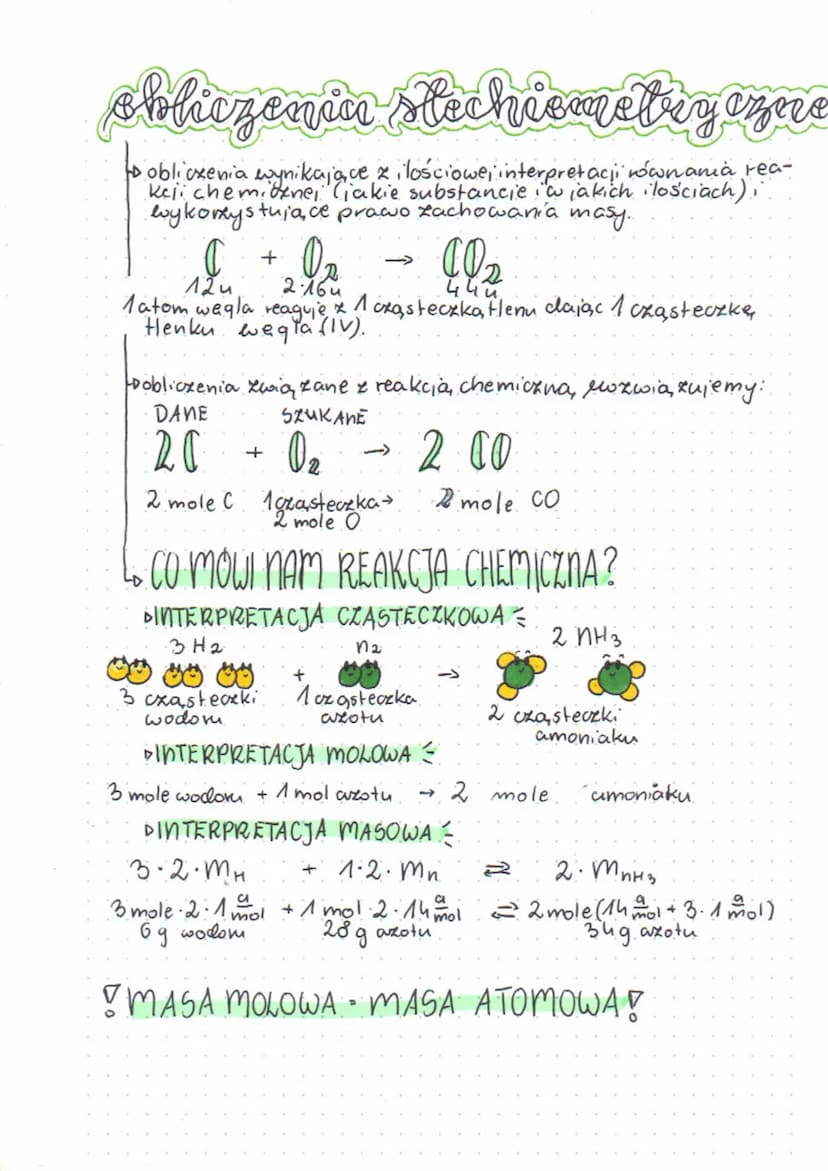 obliczenia stechiometryczne
obliczenia wynikające z ilościowej interpretacji równania rea-
kcji chemicznej (jakie substancje i w jakich ilościach) i
wykorzystujące prawo zachowania masy.
C + O₂ → CO₂
12u 2·16u 44u
1 atom węgla reaguje z 1 cząsteczką tlenu dając 1 cząsteczkę
tlenku węgla (IV).
obliczenia związane z reakcją chemiczną rozwiązujemy:
DANE SZUKANE
2C + O₂ → 2 CO
2 mole C 1 cząsteczka→ 2 mole CO
2 mole O
CO MÓWI NAM REAKCJA CHEMICZNA?
INTERPRETACJA CZĄSTECZKOWA
3 H₂ n₂ 2 NH₃
+ →
3 cząsteczki 1 cząsteczka 2 cząsteczki
wodoru azotu amoniaku
INTERPRETACJA MOLOWA
3 mole wodoru + 1 mol azotu → 2 mole amoniaku
INTERPRETACJA MASOWA
3·2·m_H + 1·2·m_n ⇄ 2·m_nH₃
3 mole·2·1 g/mol + 1 mol·2·14 g/mol ⇄ 2 mole (14 g/mol + 3·1 g/mol)
6 g wodoru 28 g azotu 34 g azotu
! MASA MOLOWA = MASA ATOMOWA !